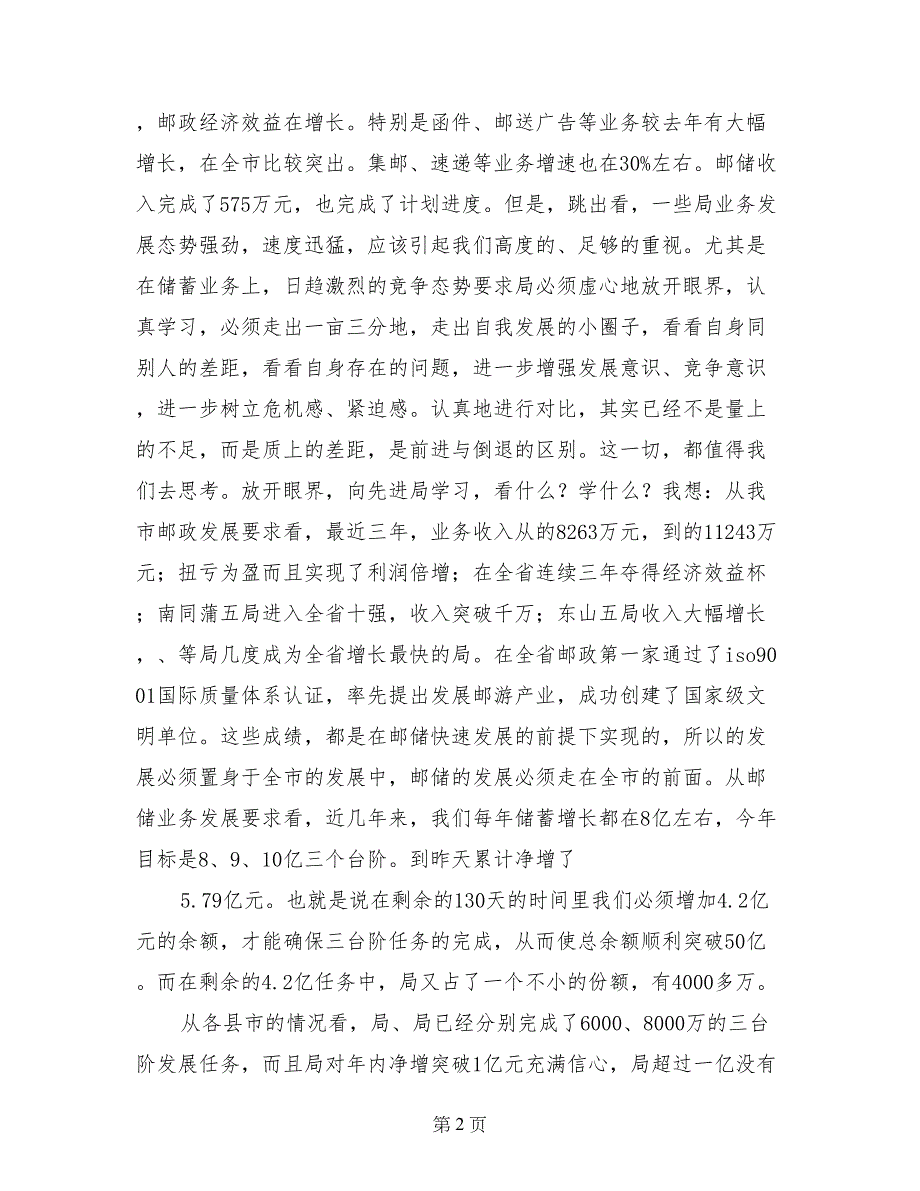 ，邮政经济效益在增长。特别是函件、邮送广告等业务较去年有大幅
增长，在全市比较突出。集邮、速递等业务增速也在30%左右。邮储收
入完成了575万元，也完成了计划进度。但是，跳出看，一些局业务发
展态势强劲，速度迅猛，应该引起我们高度的、足够的重视。尤其是
在储蓄业务上，日趋激烈的竞争态势要求局必须虚心地放开眼界，认
真学习，必须走出一亩三分地，走出自我发展的小圈子，看看自身同
别人的差距，看看自身存在的问题，进一步增强发展意识、竞争意识
，进一步树立危机感、紧迫感。认真地进行对比，其实已经不是量上
的不足，而是质上的差距，是前进与倒退的区别。这一切，都值得我
们去思考。放开眼界，向先进局学习，看什么？学什么？我想：从我
市邮政发展要求看，最近三年，业务收入从的8263万元，到的11243万
元；扭亏为盈而且实现了利润倍增；在全省连续三年夺得经济效益杯
；南同蒲五局进入全省十强，收入突破千万；东山五局收入大幅增长
，、等局几度成为全省增长最快的局。在全省邮政第一家通过了iso90
01国际质量体系认证，率先提出发展邮游产业，成功创建了国家级文
明单位。这些成绩，都是在邮储快速发展的前提下实现的，所以的发
展必须置身于全市的发展中，邮储的发展必须走在全市的前面。从邮
储业务发展要求看，近几年来，我们每年储蓄增长都在8亿左右，今年
目标是8、9、10亿三个台阶。到昨天累计净增了
5.79亿元。也就是说在剩余的130天的时间里我们必须增加4.2亿
元的余额，才能确保三台阶任务的完成，从而使总余额顺利突破50亿
。而在剩余的4.2亿任务中，局又占了一个不小的份额，有4000多万。
从各县市的情况看，局、局已经分别完成了6000、8000万的三台
阶发展任务，而且局对年内净增突破1亿元充满信心，局超过一亿没有
第 2 页